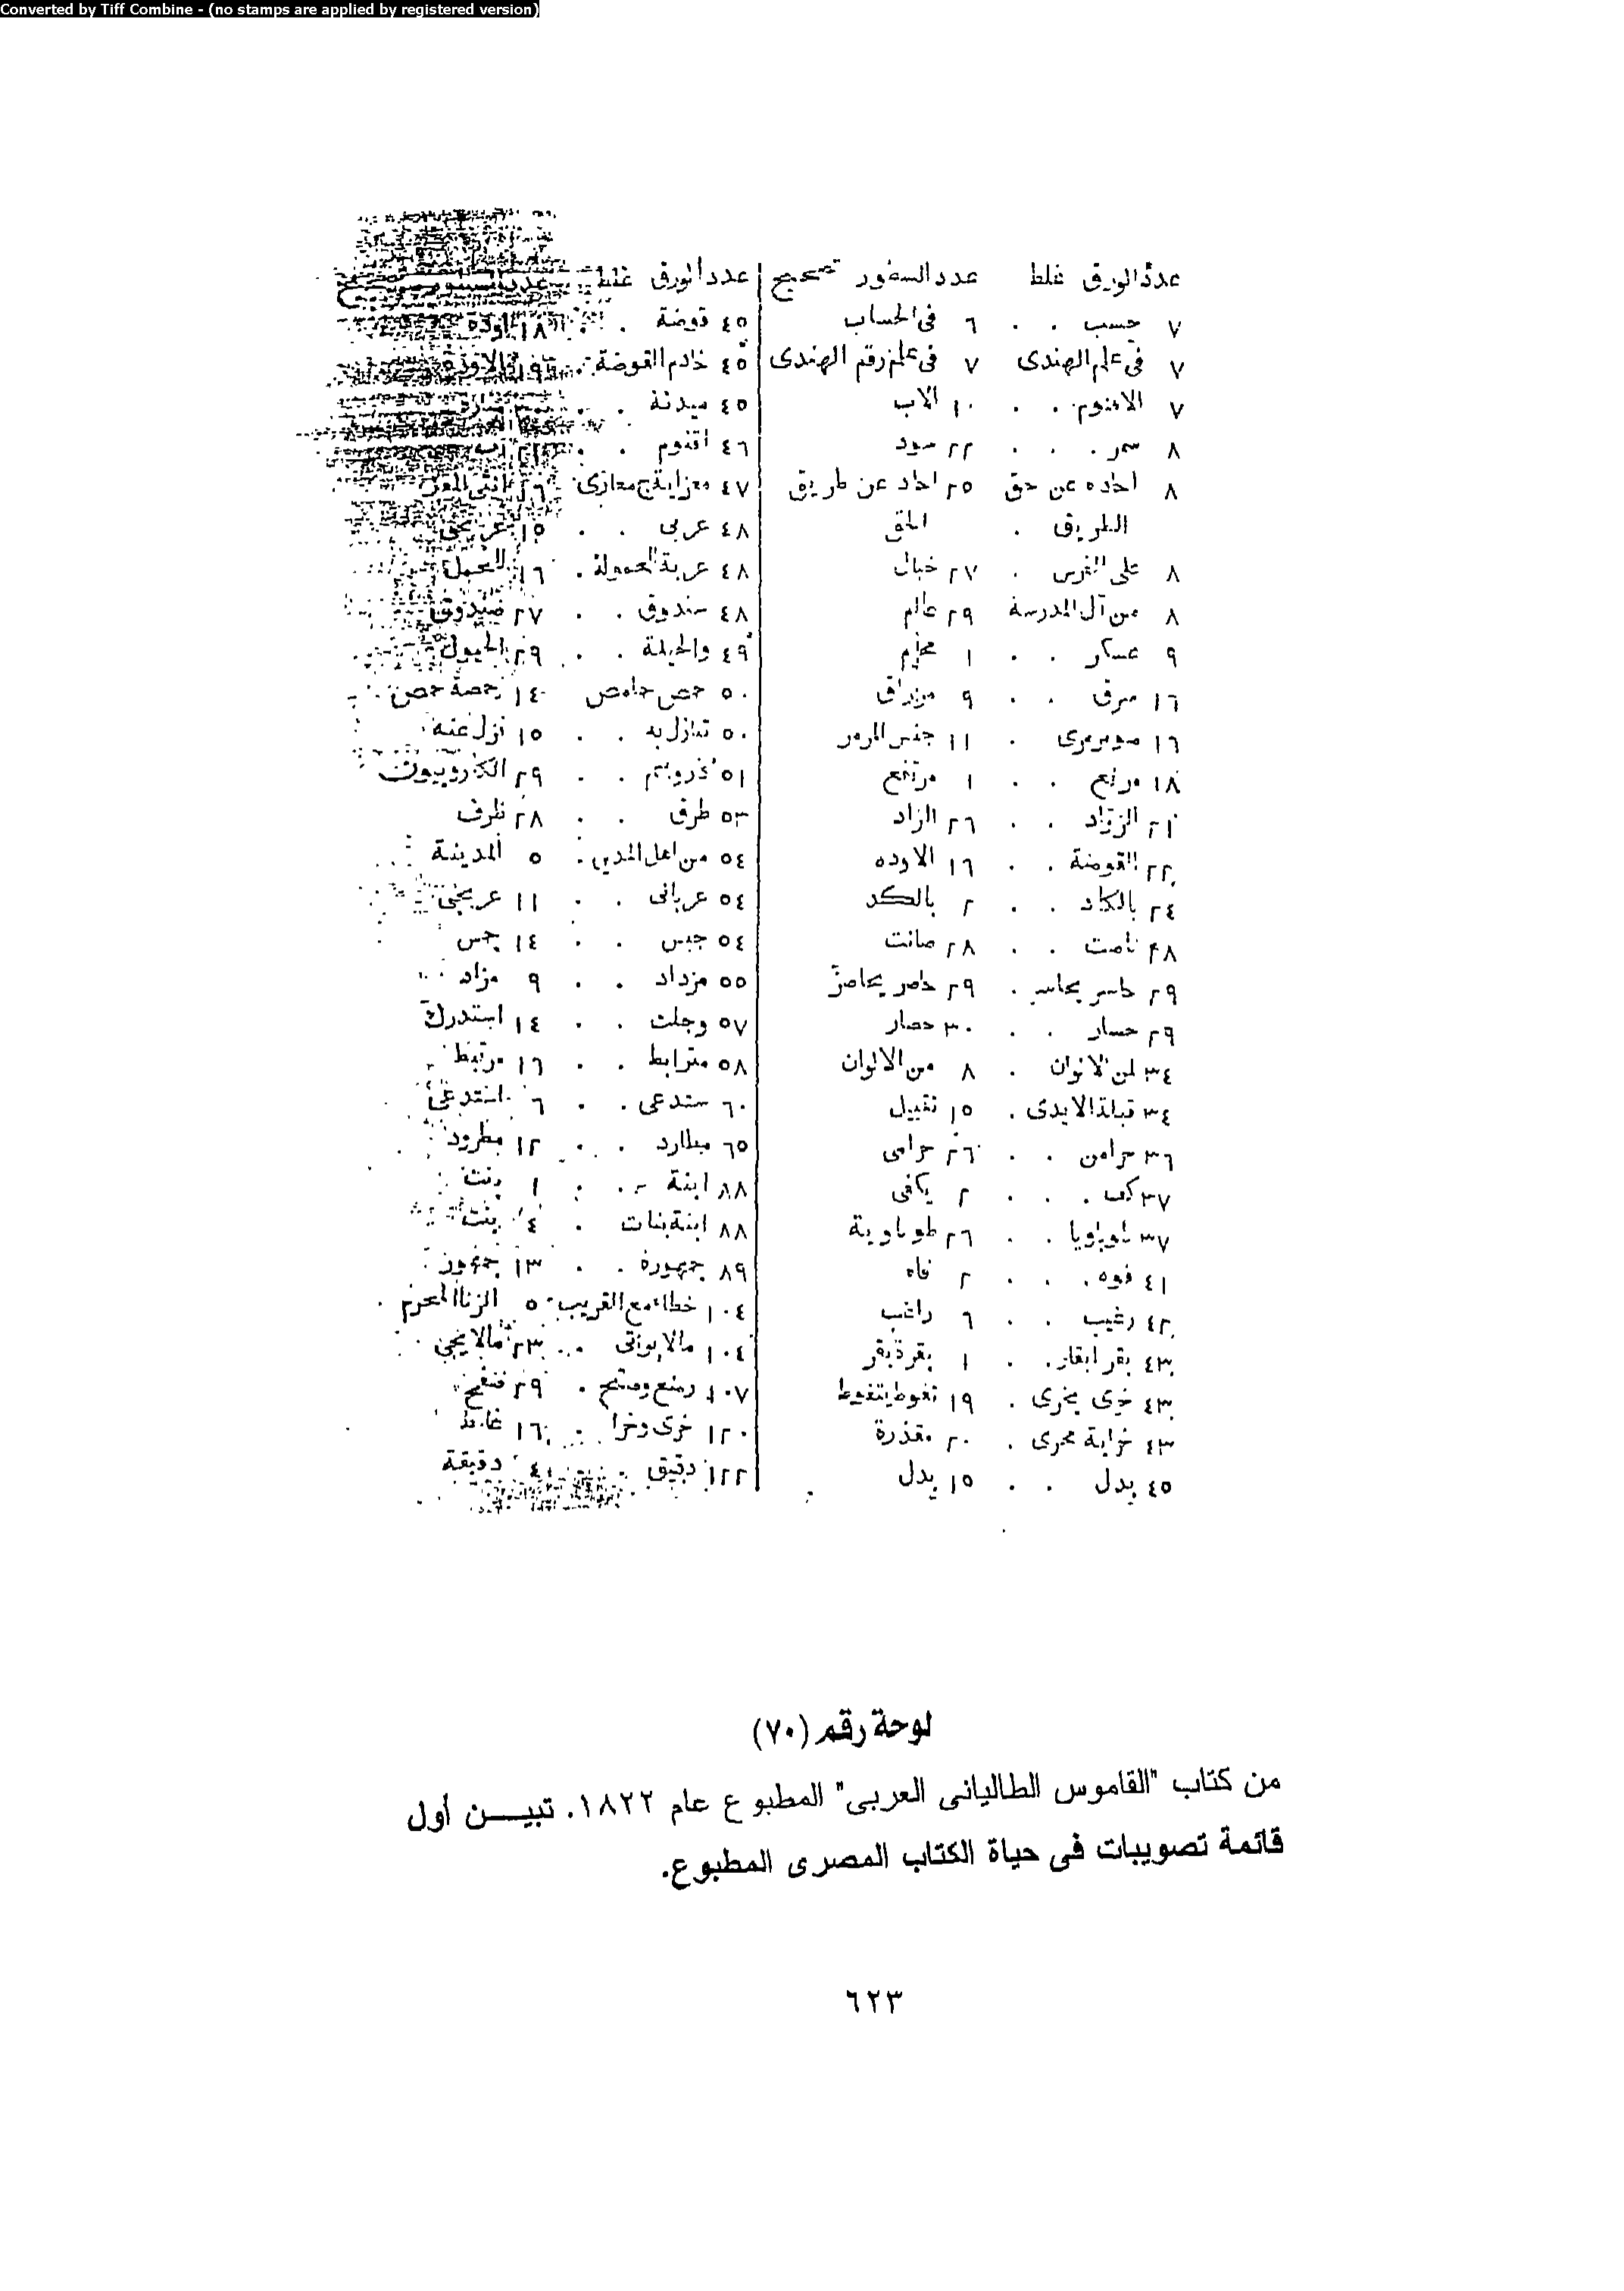 Converted by Tiff Combine - (no stamps are applied by registered version)
عدد الورق غلط عدد السطور تصحيح
٧ حسب . . ٦ فى الحساب
٧ فى علم الهندى ٧ فى علم رقم الهندى
٧ الاقنوم . . ١٠ الاب
٨ سمر . . . ٢٢ سود
٨ احاده عن حق ٢٥ احاد عن طريق
الطريق . الحق
٨ على الفرس . ٢٧ خيال
٨ من آل المدرسة ٢٩ عالم
٩ عسكر . . ١
١٦ مرق . . ٩ مزراق
١٦ . ١١ جنس المرمر
١٨ . . ١ مرتفع
٢١ الزوّاد . . ٢٦ الزاد
٢٢ القوضة . . ١٦ الاوده
٢٤ بالكاد . . ٢ بالكد
٢٨ . . ٢٨ صانت
٢٩ حاسر يحاسر . ٢٩ حاصر يحاصر
٢٩ حسار . . ٣٠ حصار
٣٤ لمن الانوان . ٨ من الالوان
٣٤ قبلة الايدى . ١٥ تقبيل
٣٦ حرامن . . ٢٦ حرامى
٣٧ . . . ٢ يكافى
٣٧ . . ٢٦ طوباوية
٤١ فوه . . . ٢ فاه
٤٢ رغيب . . ٦ راغب
٤٣ بقر ابقار . . ١ بقرة بقر
٤٣ خرى يخرى . ١٩ تغوط يتغوط
٤٣ خراية مخرى . ٢٠ مقذرة
٤٥ يدل . . ١٥ يدل
عدد الورق غلط
٤٥ قوضة . . ١٨ اوده
٤٥ خادم القوضة . ١٩ الاوده
٤٥ ميدنة . .
٤٦ اقنوم . .
٤٧ معزاية ج معازى ٦ انثى المعز
٤٨ عربى . . ١٥ عربجى
٤٨ عربة الحمولة . ١٦
٤٨ سندوق . . ٢٧ صندوق
٤٩ والحيلة . . ٢٩ الحيول
٥٠ حمص حامص ١٤ حمصة حمص
٥٠ تنازل به . . ١٥ نزل عنه
٥١ . . ٢٩ الكاروبيون
٥٣ طرف . . ٢٨ ظرف
٥٤ من اهل المدين . ٥ المدينة
٥٤ عربانى . . ١١ عربجى
٥٤ جبس . . ١٤ جس
٥٥ مزداد . . ٩ مزاد
٥٧ وجلت . . ١٤ استدرك
٥٨ مترابط . . ١٦ مرتبط
٦٠ ستدعى . . ٦ استدعى
٦٥ مطارد . . ١٢ مطرود
٨٨ ابنة . . ١ بنت
٨٨ ابنة بنات . ٤ بنت
٨٩ جمهورة . . ١٣ جمهور
١٠٤ خطاء مع القريب ٥ الزنا المحرم
١٠٤ . . ٢٣ مالا يجى
١٠٧ . ٢٩
١٢٠ خرى وخرا . ١٦ غائط
١٢٢ دقيق . ٤ دقيقة
لوحة رقم (٧٠)
من كتاب "القاموس الطاليانى العربى" المطبوع عام ١٨٢٢. تبيــن أول
قائمة تصويبات فى حياة الكتاب المصرى المطبوع.
٦٢٣